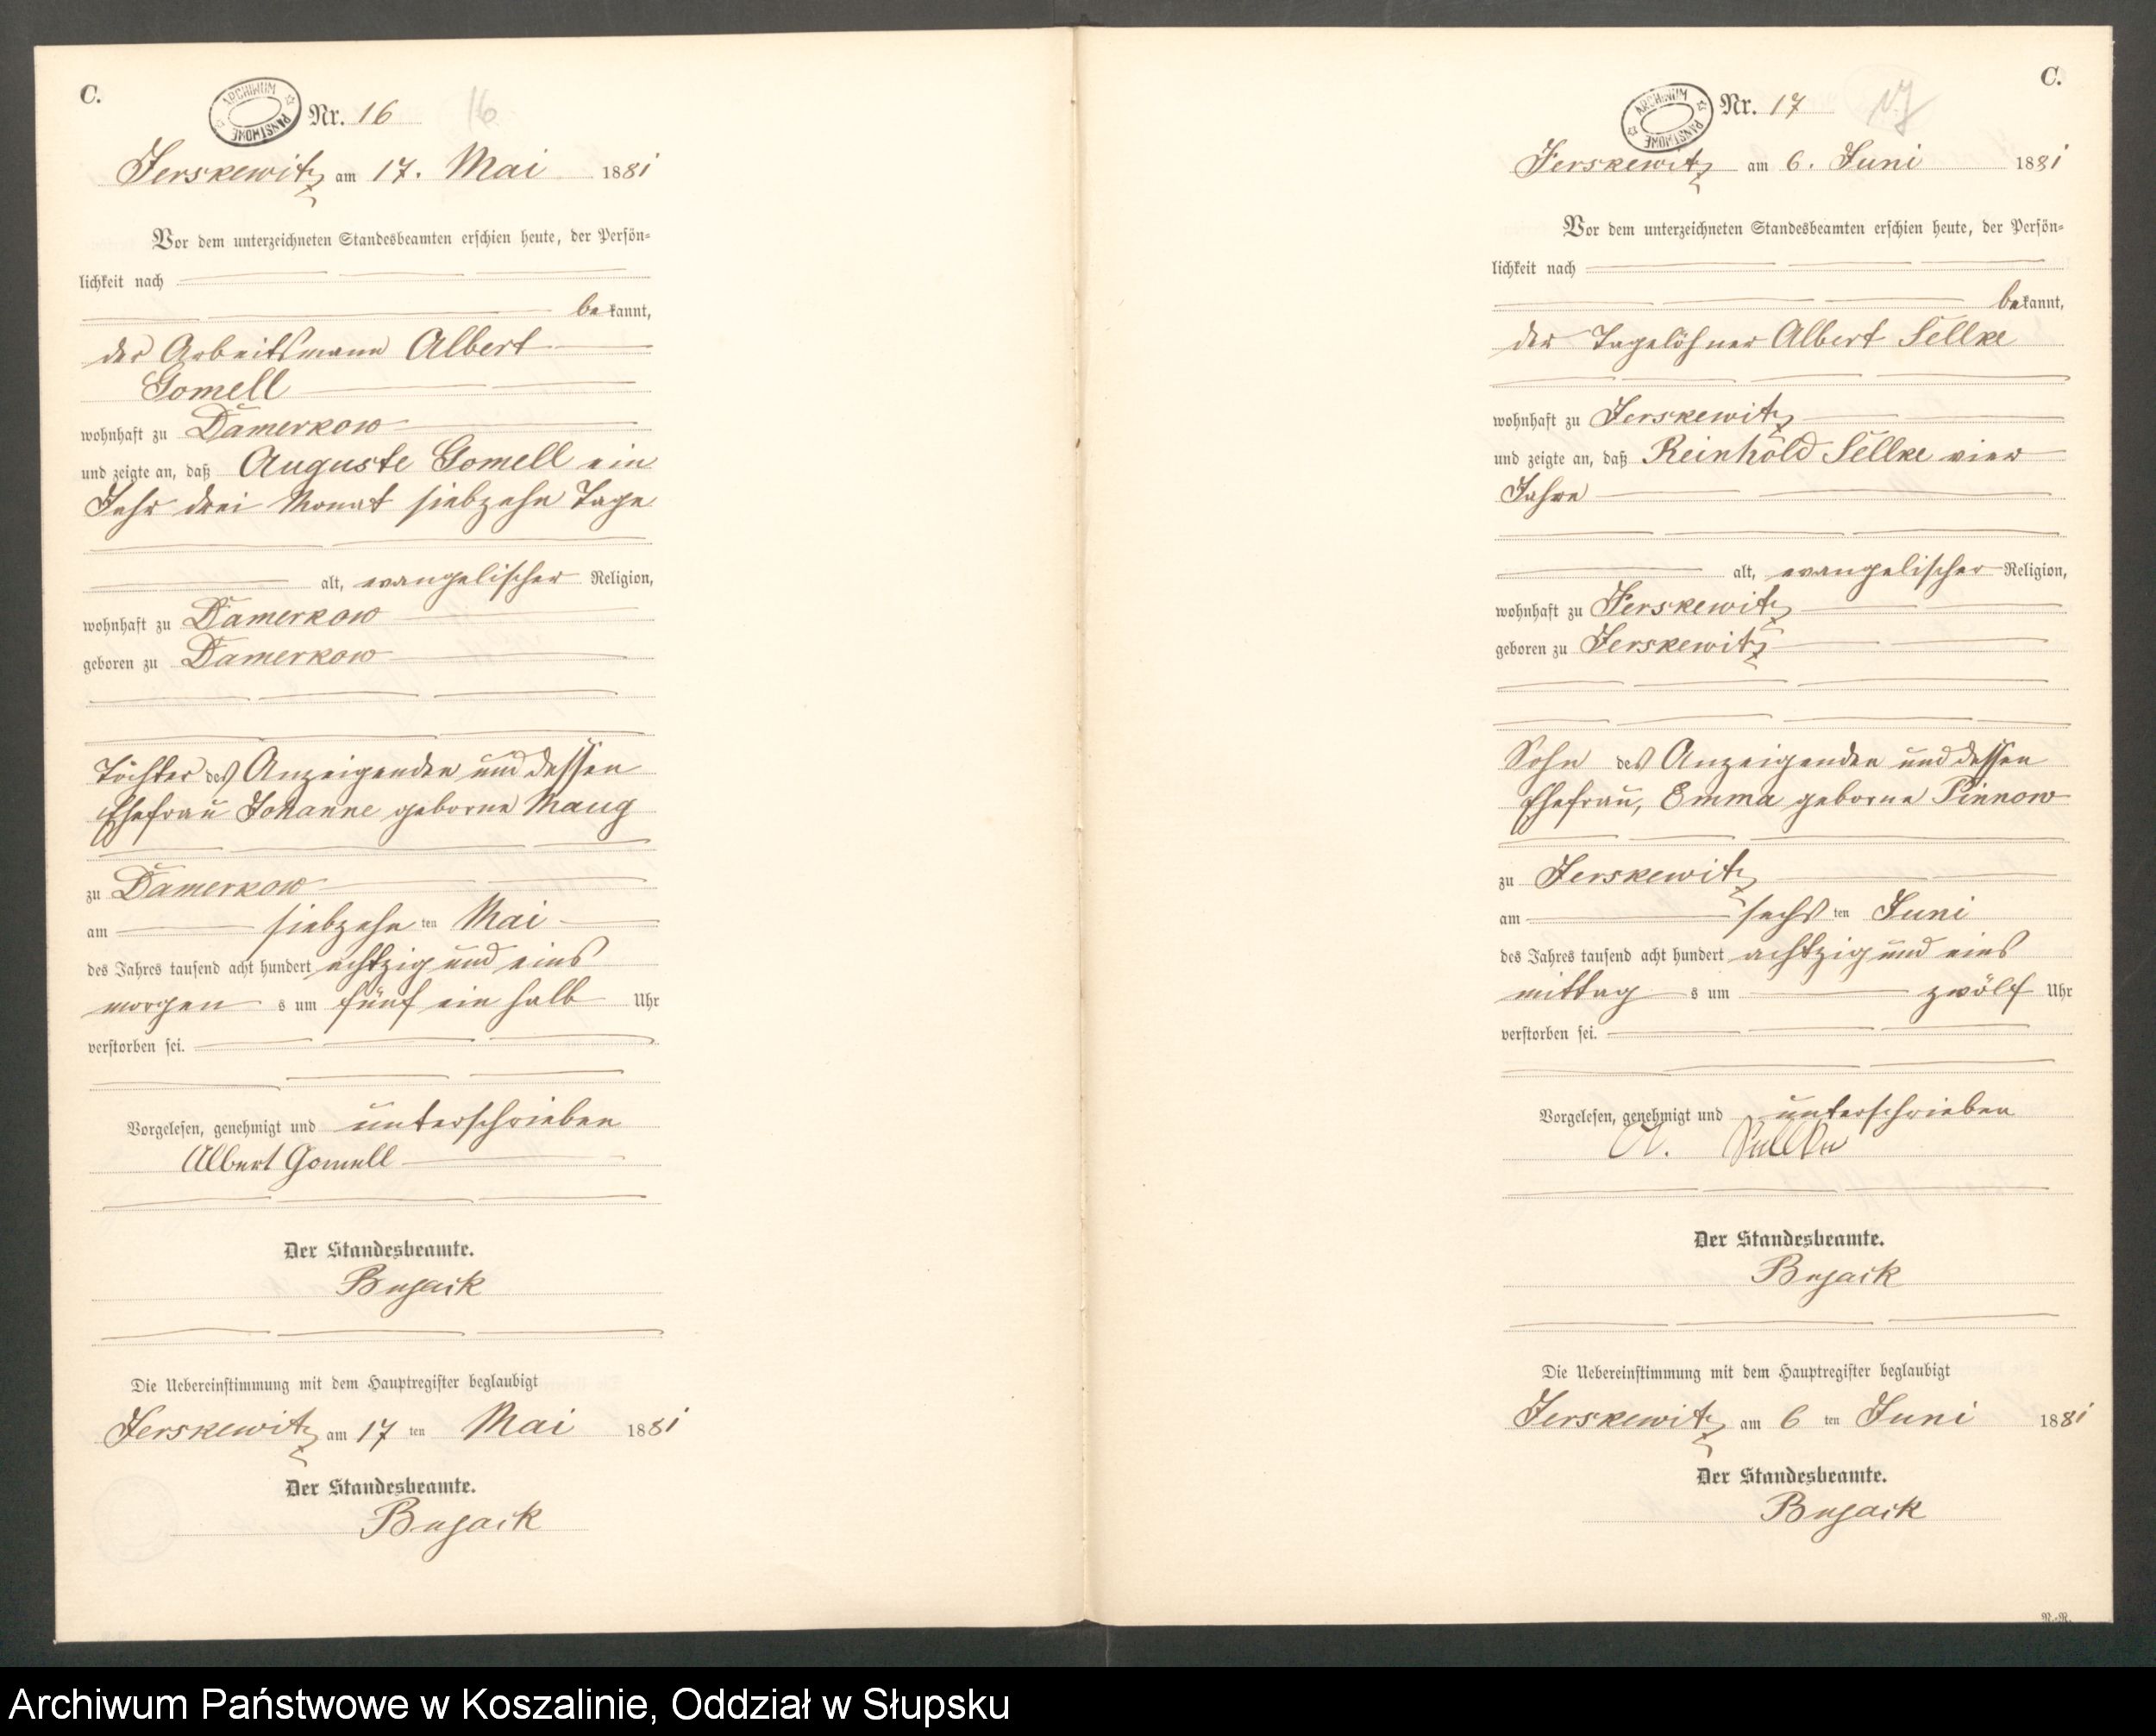 C.
ARCHIWUM PAŃSTWOWE
Nr. 16 16
Jerskewitz am 17. Mai 1881
Vor dem unterzeichneten Standesbeamten erschien heute, der Persön=
lichkeit nach
bekannt,
der Arbeitsmann Albert
Gomell
wohnhaft zu Damerkow
und zeigte an, daß Auguste Gomell ein
Jahr drei Monat siebzehn Tage
alt, evangelischer Religion,
wohnhaft zu Damerkow
geboren zu Damerkow
Tochter des Anzeigenden und dessen
Ehefrau Johanne geborne Maug
zu Damerkow
am siebzehn ten Mai
des Jahres tausend acht hundert achtzig und eins
morgen s um fünf ein halb Uhr
verstorben sei.
Vorgelesen, genehmigt und unterschrieben
Albert Gomell
Der Standesbeamte.
Bujack
Die Uebereinstimmung mit dem Hauptregister beglaubigt
Jerskewitz am 17 ten Mai 1881
Der Standesbeamte.
Bujack
C.
ARCHIWUM PAŃSTWOWE
Nr. 17 17
Jerskewitz am 6. Juni 1881
Vor dem unterzeichneten Standesbeamten erschien heute, der Persön=
lichkeit nach
bekannt,
der Tagelöhner Albert Sellke
wohnhaft zu Jerskewitz
und zeigte an, daß Reinhold Sellke vier
Jahre
alt, evangelischer Religion,
wohnhaft zu Jerskewitz
geboren zu Jerskewitz
Sohn des Anzeigenden und dessen
Ehefrau, Emma geborne Pinnow
zu Jerskewitz
am sechs ten Juni
des Jahres tausend acht hundert achtzig und eins
mittag s um zwölf Uhr
verstorben sei.
Vorgelesen, genehmigt und unterschrieben
A. Sellke
Der Standesbeamte.
Bujack
Die Uebereinstimmung mit dem Hauptregister beglaubigt
Jerskewitz am 6 ten Juni 1881
Der Standesbeamte.
Bujack
N.-N.
Archiwum Państwowe w Koszalinie, Oddział w Słupsku